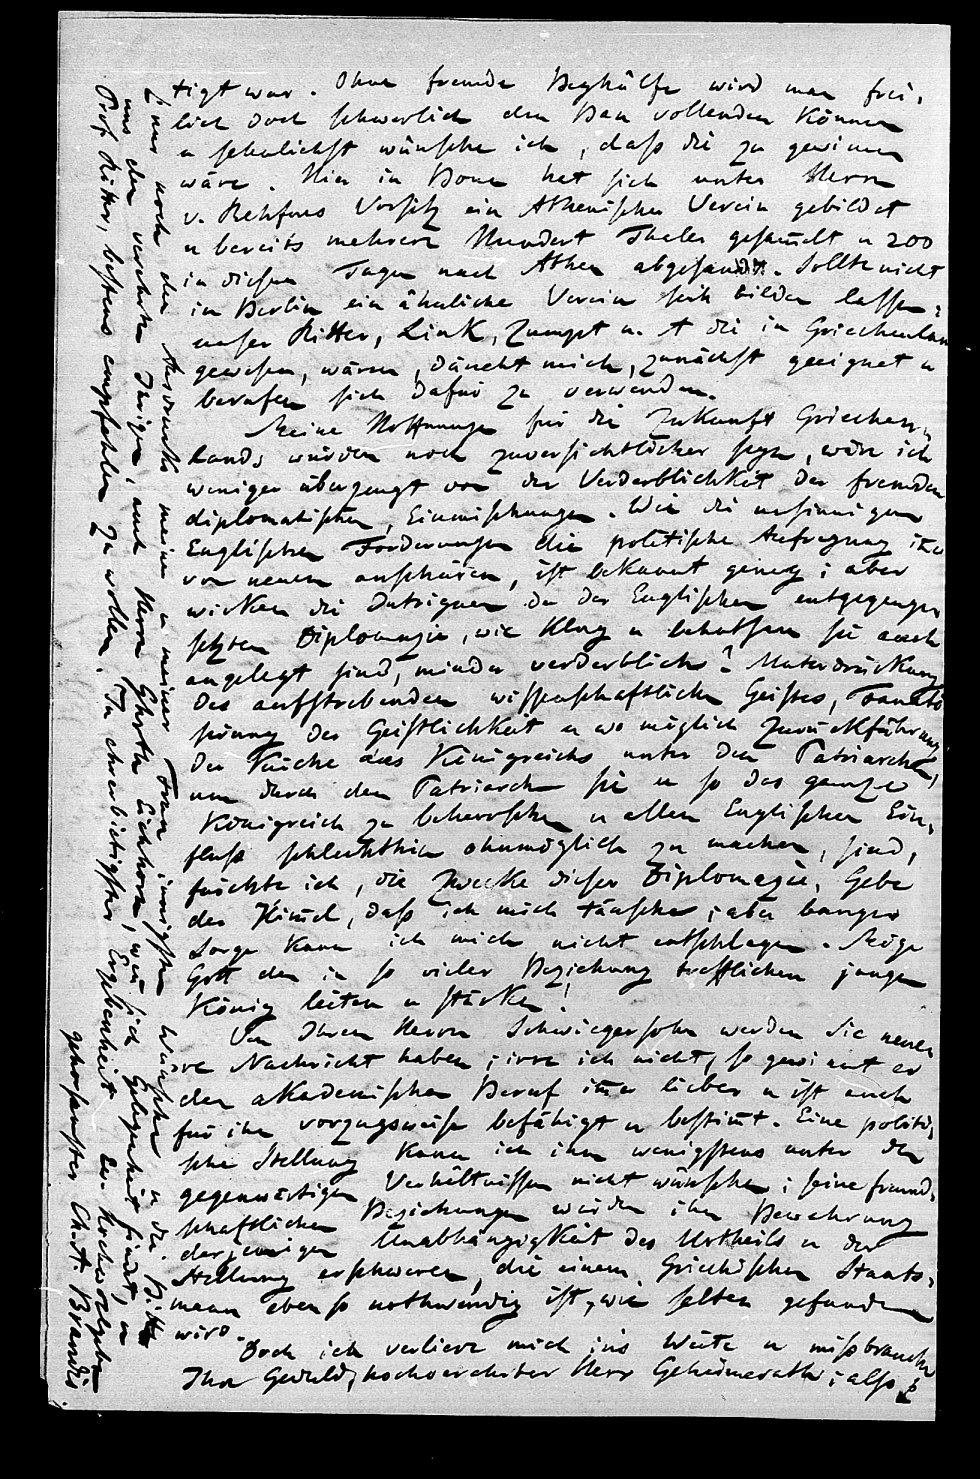 tigt war. Ohne fremde Beyhülfe wird man frei-
lich doch schwerlich den Bau vollenden können
u sehnlichst wünsche ich, daß die zu gewinnen
wäre. Hier in Bonn hat sich unter Herrn
v. Rehfues Vorsitz ein Athenischer Verein gebildet
u bereits mehrere Hundert Thaler gesam̅elt u 200
in diesen Tagen nach Athen abgesandt. Sollte nicht
in Berlin ein ähnlicher Verein sich bilden lassen?
unser Ritter, Link, Zumpt u. A die in Griechenland
gewesen, wären, däucht mich, zunächst geeignet u
berufen sich dafür zu verwenden.
Meine Hoffnungen für die Zukunft Griechen-
lands würden noch zuversichtlicher seyn, wäre ich
weniger überzeugt von der Verderblichkeit der fremden
diplomatischen Einmischungen. Wie die unsinnigen
Englischen Forderungen die politische Aufregung im̅er
von neuem anschüren, ist bekannt genug; aber
wirken die Intriguen der der Englischen entgegenge-
setzten Diplomazie, wie klug u behutsam sie auch
angelegt sind, minder verderblich? Unterdrückung
des aufstrebenden wissenschaftlichen Geistes, Fanati-
sirung der Geistlichkeit u wo möglich Zurückführung
der Kirche des Königreichs unter den Patriarchen,
um durch den Patriarchen sie u so das ganze
Königreich zu beherrschen u allen Englischen Ein-
fluß schlechthin ohnmöglich zu machen, sind,
fürchte ich, die Zwecke dieser Diplomazie. Gebe
der Him̅el, daß ich mich täusche; aber banger
Sorge kann ich mich nicht entschlagen. Möge
Gott den in so vieler Beziehung trefflichen jungen
König leiten u stärken!
Von Ihrem Herrn Schwiegersohn werden Sie neue-
re Nachricht haben; irre ich nicht, so gewinnt er
den akademischen Beruf im̅er lieber u ist auch
für ihn vorzugsweise befähigt u bestim̅t. Eine politi-
sche Stellung kann ich ihm wenigstens unter den
gegenwärtigen Verhältnissen nicht wünschen; seine freund-
schaftlichen Beziehungen würden ihm Bewahrung
derjenigen Unabhängigkeit des Urtheils u der
Stellung erschweren, die einem Griechischen Staats-
mann eben so nothwendig ist, wie selten gefunden
wird.
Doch ich verliere mich ins Weite u mißbrauche
Ihre Geduld, hochverehrter Herr Geheimerath; also
nur noch den Ausdruck meiner u meiner Frau innigsten Wünsche u die Bitte
uns den verehrten Ihrigen, auch Herrn Ghrth Eichhorn, wenn sich Gelegenheit findet, u
Prof. Ritter, bestens empfehlen zu wollen. In ehrerbietigster Ergebenheit Ew. Hochwolgeb
gehorsamster Ch. A. Brandis